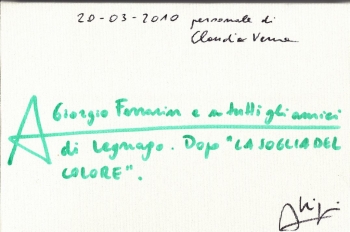 20-03-2010 personale di
Claudia Verna
A Giorgio Ferrarin e a tutti gli amici
di Legnago. Dopo "LA SOGLIA DEL
COLORE".